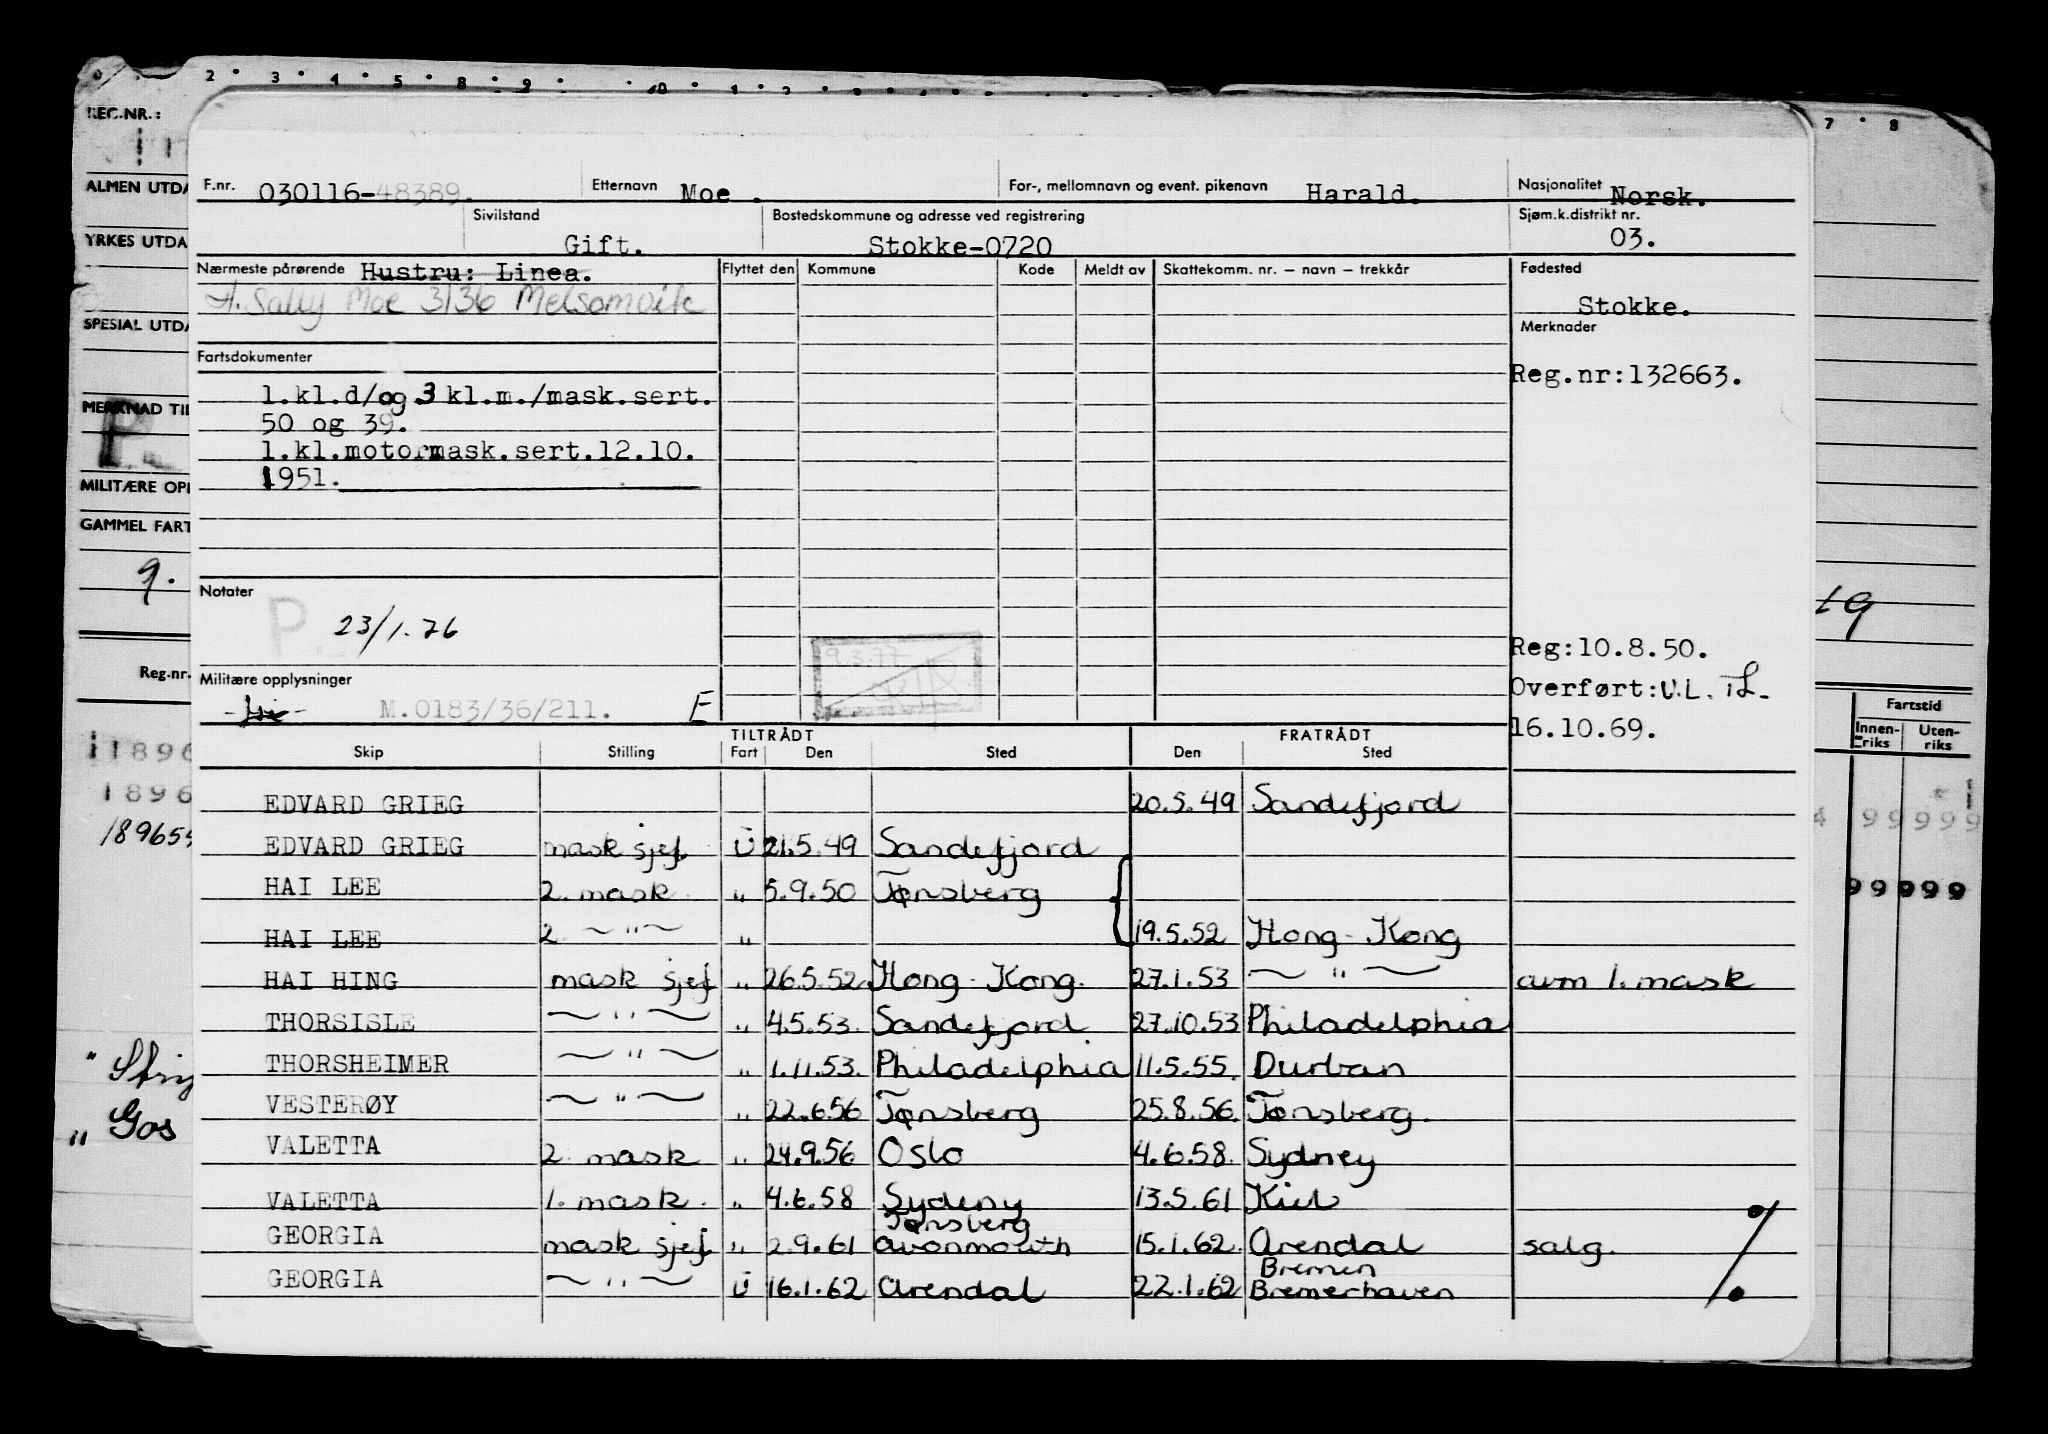 2 · 3 · 4 · 5 · 8 · 9
7 · 8
REG.NR.:
ALMEN UTDA
YRKES UTDA
SPESIAL UTDA
MERKNAD TIL
P
MILITÆRE OPP
GAMMEL FART
9.
Reg.nr.
11896
1896
189655
" Strij
„ Gos
F.nr. 030116-48389. Etternavn Moe . For-, mellomnavn og event. pikenavn Harald. Nasjonalitet Norsk.
Sivilstand Gift. Bostedskommune og adresse ved registrering Stokke-0720 Sjøm.k.distrikt nr. 03.
Nærmeste pårørende Hustru: Linea. Flyttet den Kommune Kode Meldt av Skattekomm. nr. — navn — trekkår Fødested
H. Sally Moe 3136 Melsomvik Stokke.
Merknader
Fartsdokumenter
Reg.nr:132663.
1.kl.d/og 3 kl.m./mask.sert.
50 og 39.
1.kl.motormask.sert.12.10.
1951.
Notater
P 23/1.76
19
9.3.77
Reg:10.8.50.
Militære opplysninger
Overført:U.L. TL-
M.0183/36/211. E
16.10.69.
Fartstid
Innen-riks Uten-riks
TILTRÅDT FRATRÅDT
Skip Stilling Fart Den Sted Den Sted
EDVARD GRIEG 20.5.49 Sandefjord
EDVARD GRIEG mask sjef U 21.5.49 Sandefjord
HAI LEE 2. mask „ 5.9.50 Tønsberg {
HAI LEE 2 — " — „ 19.5.52 Hong-Kong
HAI HING mask sjef „ 26.5.52 Hong-Kong. 27.1.53 — " — avm 1. mask
THORSISLE — " — „ 4.5.53. Sandefjord 27.10.53 Philadelphia
THORSHEIMER — " — „ 1.11.53. Philadelphia 11.5.55. Durban
VESTERØY — " — „ 22.6.56 Tønsberg 25.8.56. Tønsberg.
VALETTA 2. mask „ 24.9.56 Oslo 4.6.58. Sydney
VALETTA 1. mask. „ 4.6.58 Sydeny 13.5.61 Kiel
Tønsberg
GEORGIA mask sjef „ 2.9.61 Avonmouth 15.1.62. Arendal salg.
Bremen
GEORGIA — " — U 16.1.62 Arendal 22.1.62 Bremerhaven
4 99999
99999